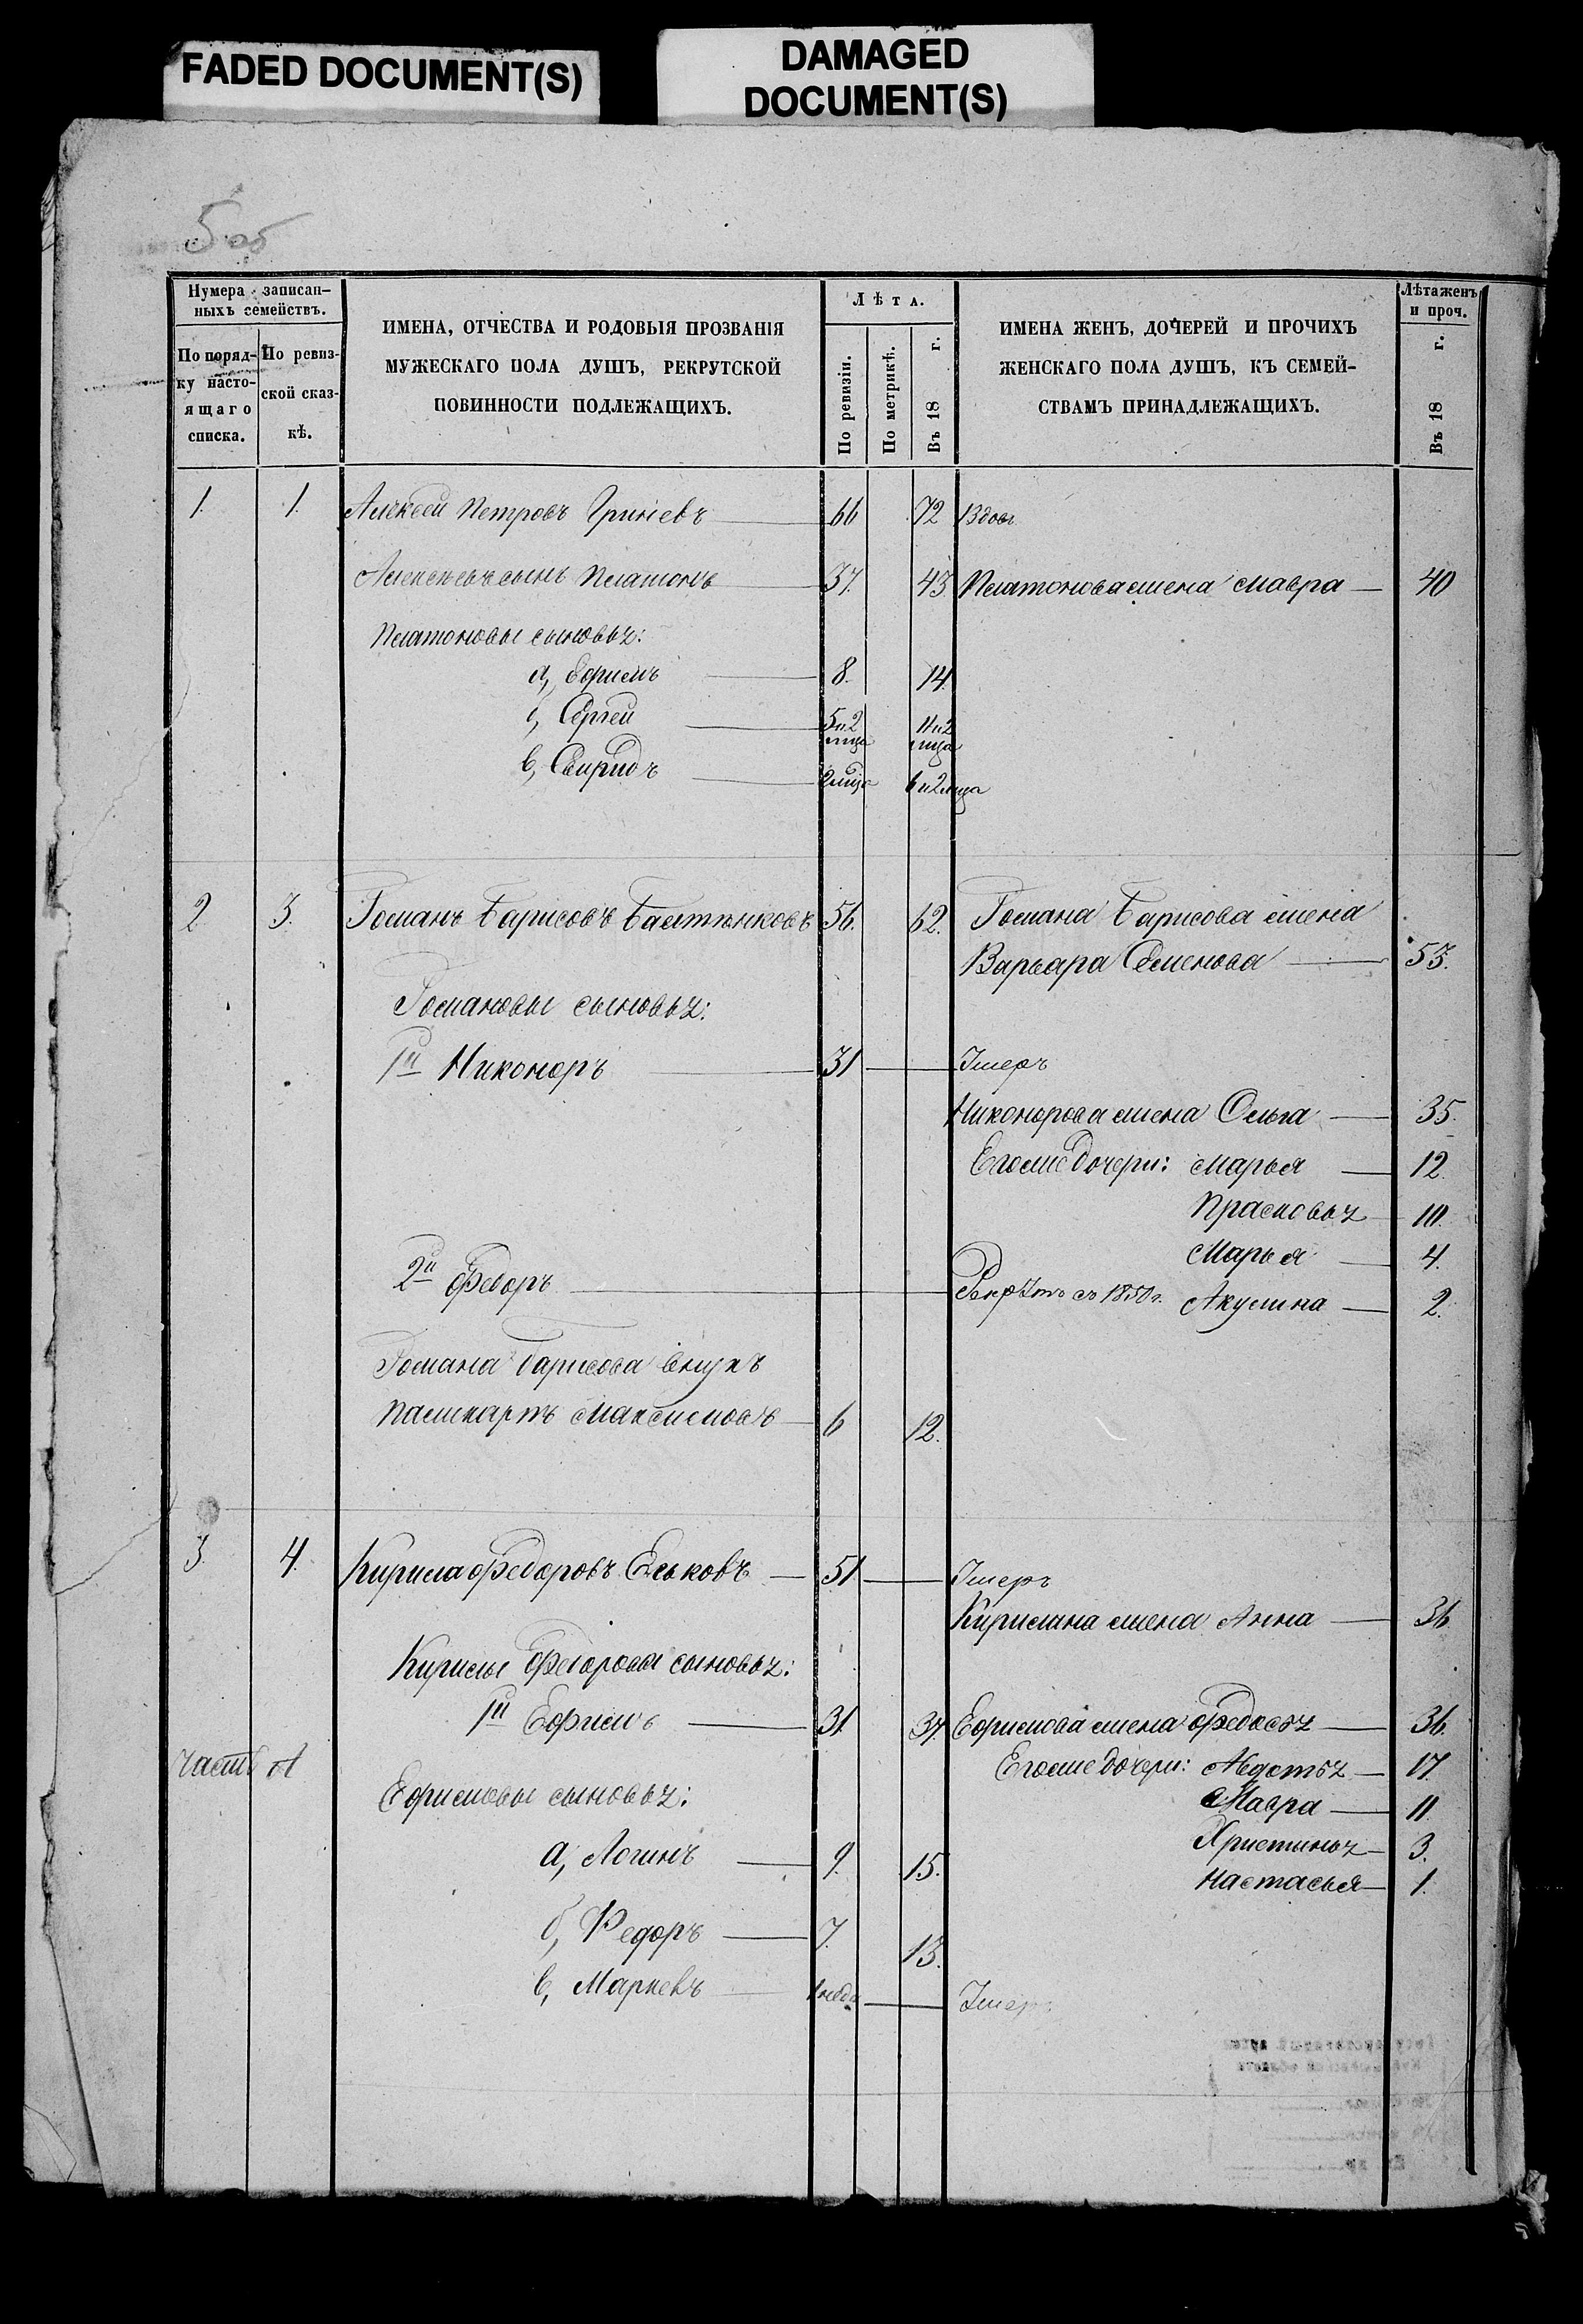 FADED DOCUMENT(S)
DAMAGED
DOCUMENT(S)
5 об
Нумера записан-
ныхъ семействъ.
По поряд-
ку насто-
ящаго
списка.
По ревиз-
ской сказ-
кѣ.
ИМЕНА, ОТЧЕСТВА И РОДОВЫЯ ПРОЗВАНІЯ
МУЖЕСКАГО ПОЛА ДУШЪ, РЕКРУТСКОЙ
ПОВИННОСТИ ПОДЛЕЖАЩИХЪ.
Лѣта.
По ревизіи.
По метрикѣ.
Въ 18 г.
ИМЕНА ЖЕНЪ, ДОЧЕРЕЙ И ПРОЧИХЪ
ЖЕНСКАГО ПОЛА ДУШЪ, КЪ СЕМЕЙ-
СТВАМЪ ПРИНАДЛЕЖАЩИХЪ.
Лѣта женъ
и проч.
Въ 18 г.
1. 1. Алексей Петровъ Гриневъ 66 72 Вдовъ
сынъ Платонъ 37. 43 Платонова жена Мавра 40
Платоновы сыновья:
а, Ефимъ 8. 14.
б, Сергей 5 и 2 м-ца 11 и 2 м-ца
в, Свиридъ 2 м-ца 6 и 2 м-ца
2. 3. Романъ Барисовъ 56. 62. Романа Барисова жена
Варвара Семенова 53.
Романовы сыновья:
1й Никоноръ 31 Умеръ
Никонорова жена Ольга 35.
Его же дочери: Марья 12.
Прасковья 10.
Марья 4.
2й Федоръ Рекрутъ съ 1850 г. Акулина 2.
Романа Барисова внукъ
Максимовъ 6 12.
3 4. Кирила Федоровъ Ельковъ 51 Умеръ
Кирилина жена Анна 36
Кирилы Федорова сыновья:
1й Ефимъ 31. 37. Ефимова жена Федосья 36.
Часть А
Его же дочери: Авдотья 17.
Ефимовы сыновья:
Мавра 11.
Христинья 3.
а, Логинъ 9. 15.
Настасья 1.
б, Федоръ 7. 13.
в, Маркевъ Умеръ